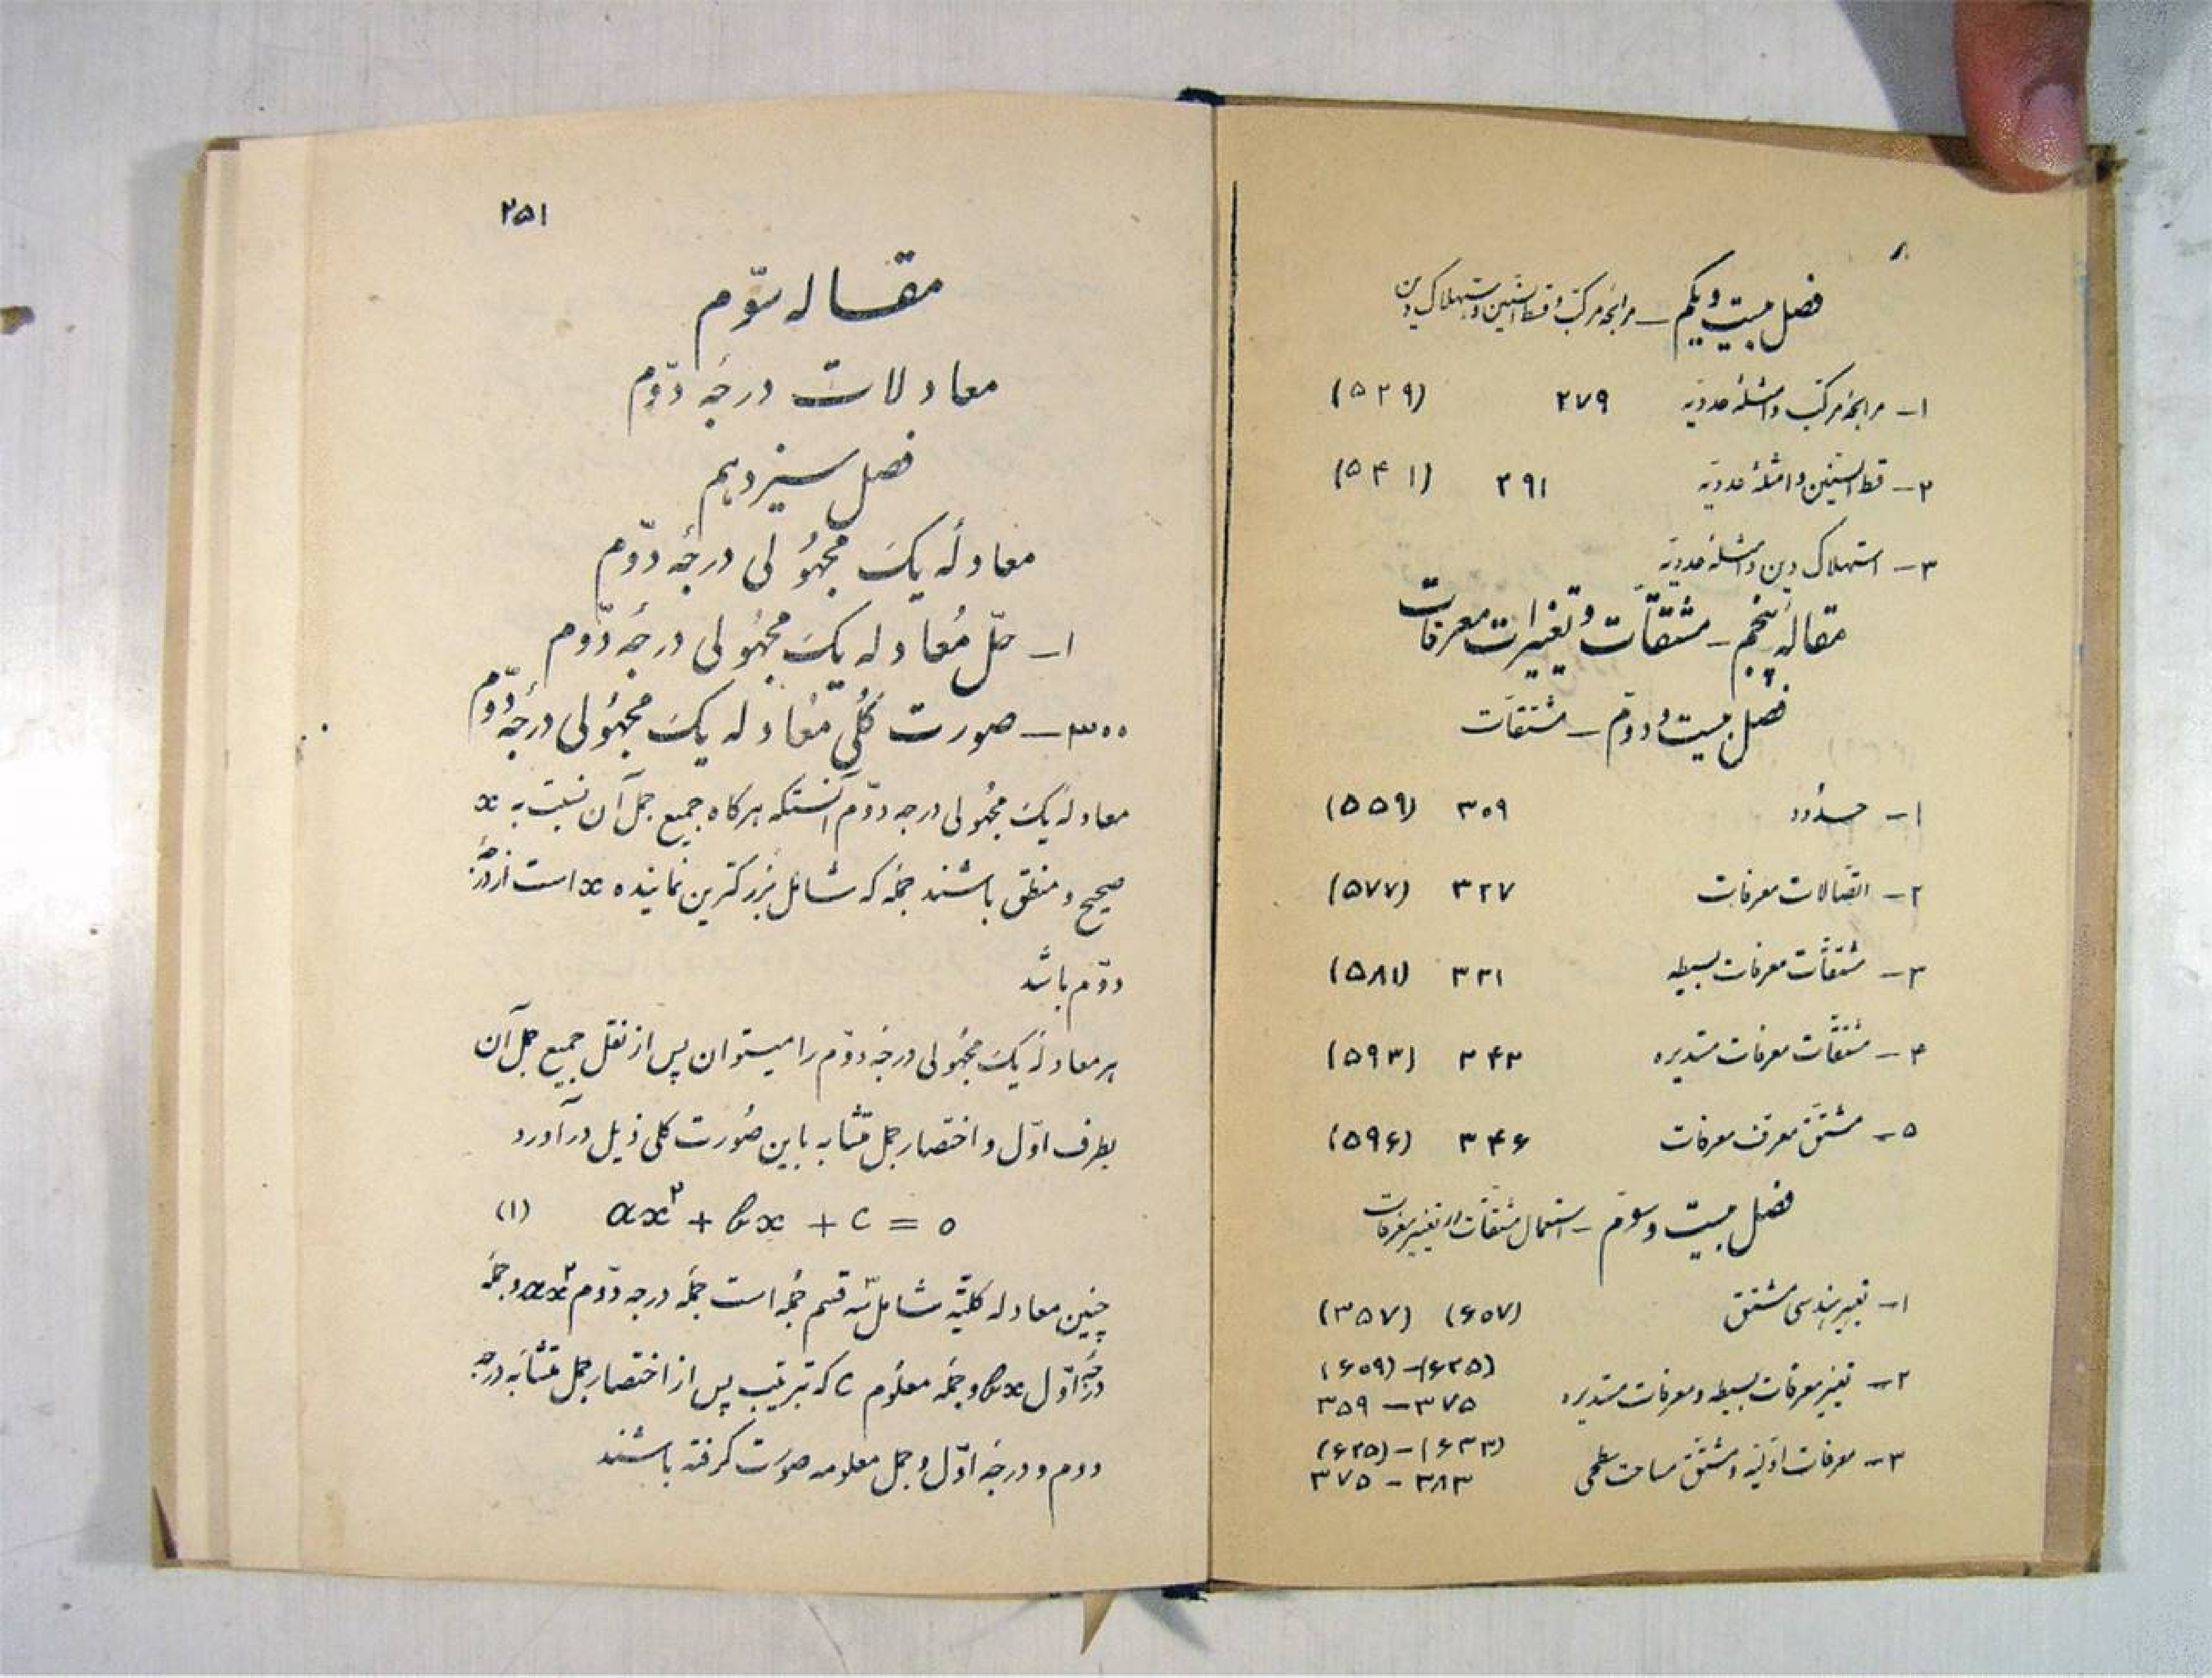 ۸
فصل بیست و یکم – مرابحه مرکب و قسط السنین و استهلاک دین
۱- مرابحه مرکب و امثله عددیه ۲۷۹ (۵۲۹)
۲- قسط السنین و امثله عددیه ۲۹۱ (۵۴۱)
۳- استهلاک دین و امثله عددیه
مقاله پنجم – مشتقات و تغییرات معرفات
فصل بیست و دوم – مشتقات
۱- حدود ۳۰۹ (۵۵۹)
۲- اتصالات معرفات ۳۲۷ (۵۷۷)
۳- مشتقات معرفات بسیطه ۳۳۱ (۵۸۱)
۴- مشتقات معرفات مستدیره ۳۴۳ (۵۹۳)
۵- مشتق معرف معرفات ۳۴۶ (۵۹۶)
فصل بیست و سوم – استعمال مشتقات در تغییر معرفات
۱- تعبیر هندسی مشتق (۶۰۷) (۳۵۷)
۲- تغییر معرفات بسیطه و معرفات مستدیره (۶۲۵)-(۶۰۹)
۳۵۹ – ۳۷۵
۳- معرفات اولیه و مشتق مساحت سطحی (۶۳۳)-(۶۲۵)
۳۷۵ – ۳۸۳
۲۵۱
مقاله سوّم
معادلات درجهٔ دوّم
فصل سیزدهم
معادلهٔ یک مجهُولی درجهٔ دوّم
۱- حلّ مُعادله یک مجهُولی درجهٔ دوّم
۳۰۰- صورت کُلّی مُعادله یک مجهُولی درجهٔ دوّم
معادلهٔ یک مجهُولی درجه دوّم آنستکه هرگاه جمیع جمل آن نسبت به x
صحیح و منطق باشند جمله که شامل بزرگترین نماینده x است از درجهٔ
دوّم باشد
هر معادلهٔ یک مجهُولی درجهٔ دوّم را میتوان پس از نقل جمیع جمل آن
بطرف اوّل و اختصار جمل متشابه باین صُورت کلی ذیل در آورد
ax² + bx + c = 0 (۱)
چنین معادله کلیّه شامل سه قسم جمله است جمله درجه دوّم ax² و جمله
درجهٔ اوّل bx و جمله معلُوم c که بترتیب پس از اختصار جمل متشابه درجه
دوم و درجهٔ اوّل و جمل معلومه صورت گرفته باشند